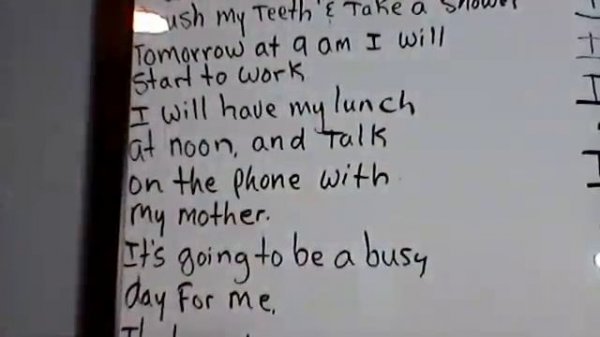 my Teeth & Take a Shower
Tomorrow at 9 am I will
Start to work
I will have my lunch
at noon, and Talk
on the phone with
my mother.
It's going to be a busy
day For me.